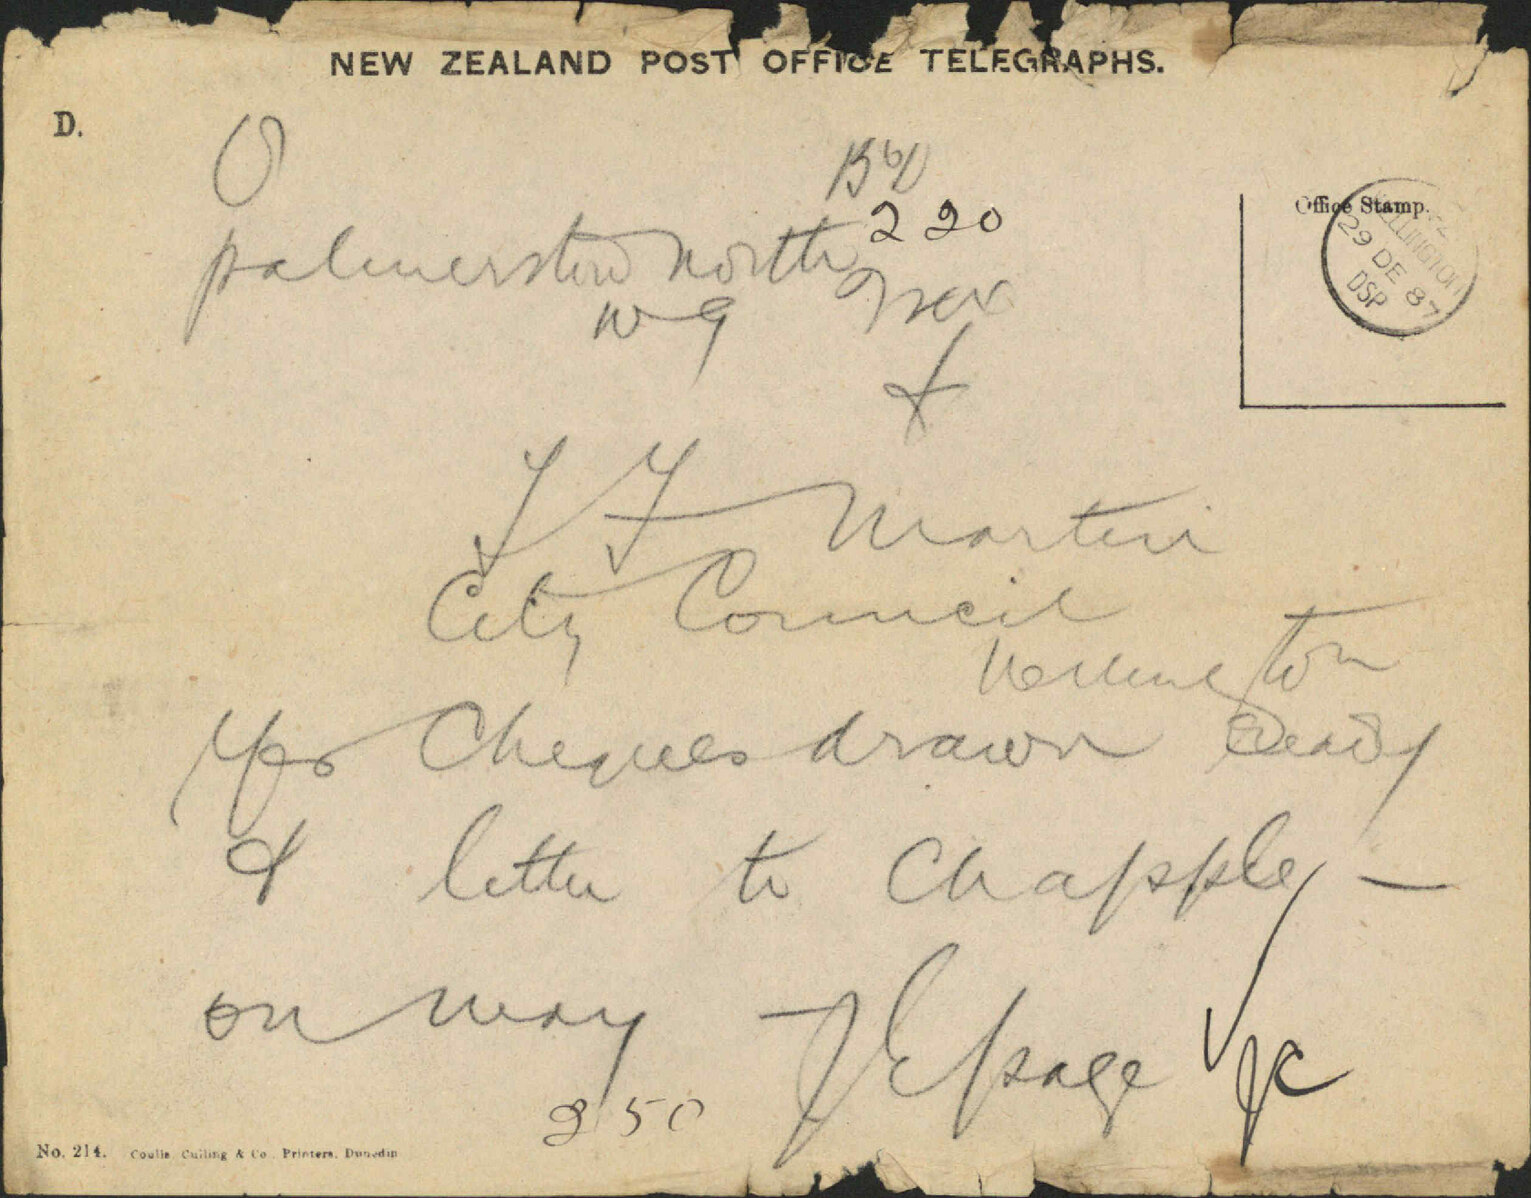 NEW ZEALAND POST OFFICE TELEGRAPHS.
D.
O
220
palmerston north
Office Stamp.
WELLINGTON
29 DE 87
DSP
J F Martin
City Council
Wellington
Yes Cheques drawn ready
& letter to Chapple —
on way — J E page
JC
250
No. 214. Coulls Culling & Co. Printers, Dunedin